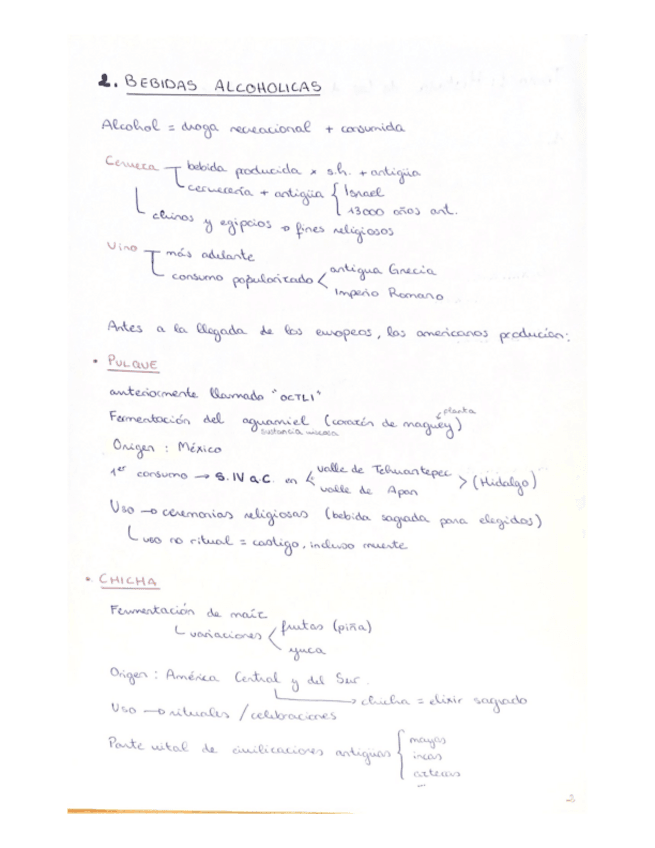 2. BEBIDAS ALCOHOLICAS
Alcohol = droga recreacional + consumida
Cerveza
bebida producida x s.h. + antigüa
cervecería + antigüa { Israel
13000 años ant.
chinos y egipcios → fines religiosos
Vino
más adelante
consumo popularizado < antigua Grecia
Imperio Romano
Antes a la llegada de los europeos, los americanos producían:
• PULQUE
anteriormente llamado "OCTLI"
Fermentación del aguamiel (corazón de maguey)
planta
sustancia viscosa
Origen : México
1er consumo → S. IV a.C. en < valle de Tehuantepec > (Hidalgo)
valle de Apan
Uso → ceremonias religiosas (bebida sagrada para elegidos)
uso no ritual = castigo, incluso muerte
• CHICHA
Fermentación de maíz
variaciones < frutas (piña)
yuca
Origen : América Central y del Sur.
→ chicha = elixir sagrado
Uso → rituales / celebraciones
Parte vital de civilizaciones antigüas { mayas
incas
aztecas
...
2